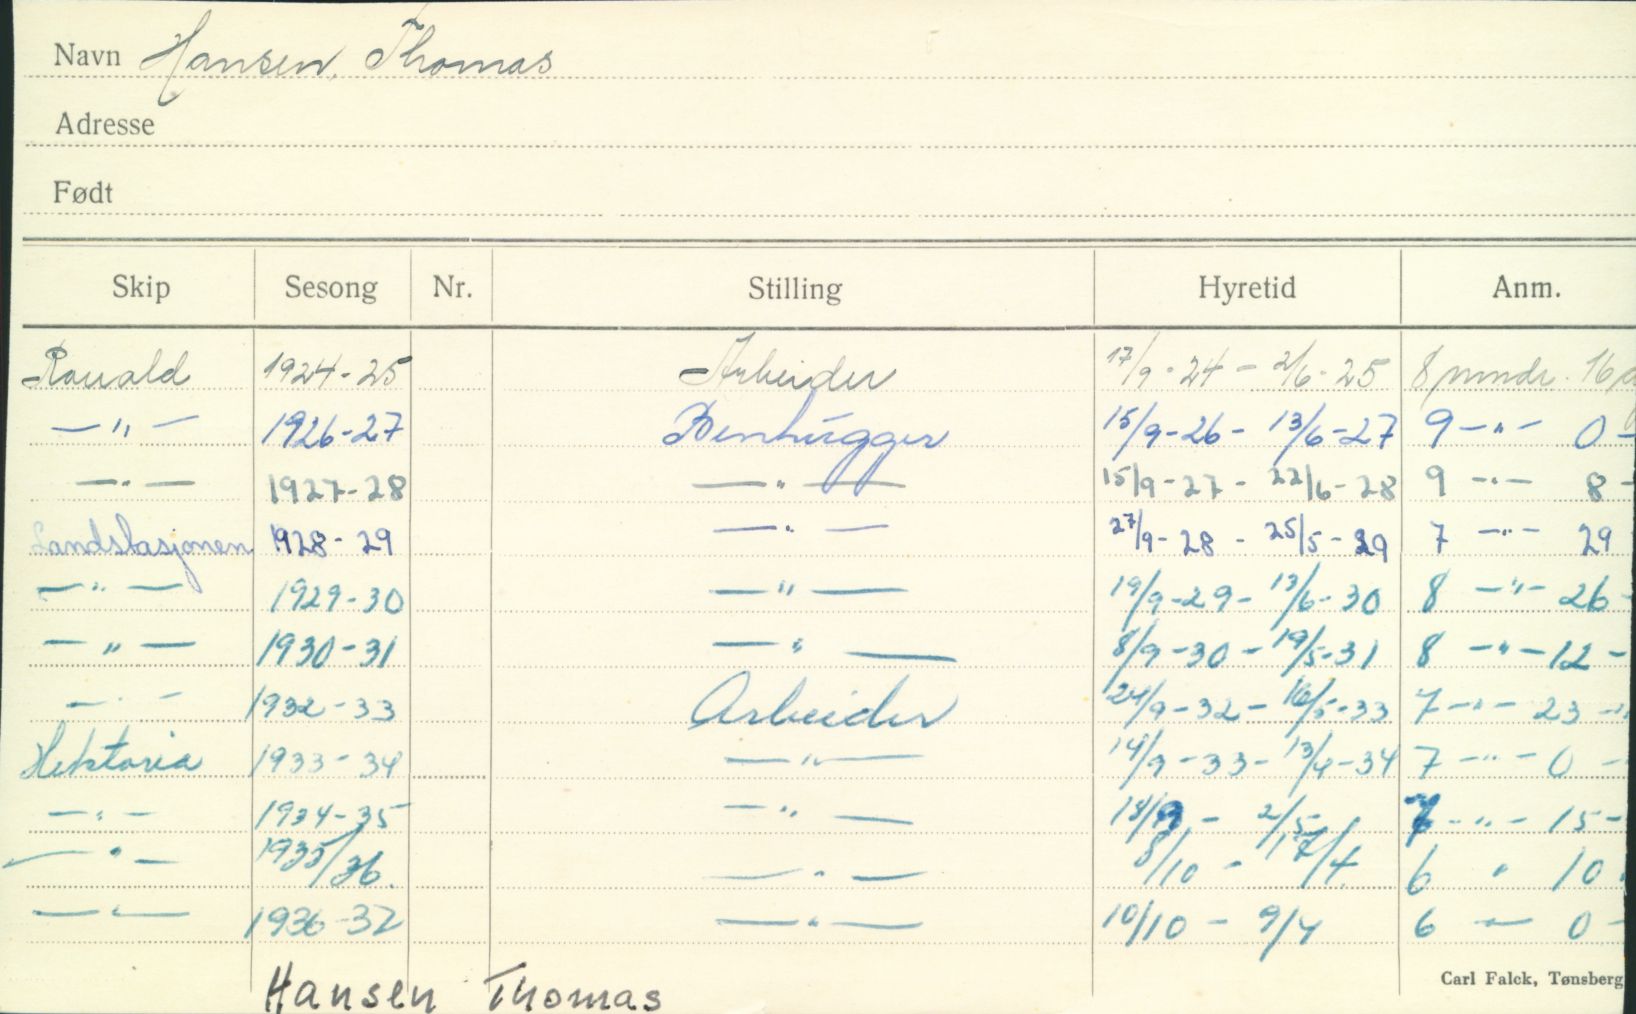 Navn Hansen, Thomas
Adresse
Født
Skip Sesong Nr. Stilling Hyretid Anm.
Ronald 1924-25 Arbeider 17/9-24 - 2/6-25 8 mndr. 16
— " — 1926-27 Benhugger 15/9-26 - 13/6-27 9 — " — 0 -
— " — 1927-28 — " — 15/9-27 - 22/6-28 9 — " — 8 -
Landstasjonen 1928-29 — " — 27/9-28 - 25/5-29 7 — " — 29
— " — 1929-30 — " — 19/9-29 - 13/6-30 8 — " — 26 -
— " — 1930-31 — " — 8/9-30 - 19/5-31 8 — " — 12 -
— " — 1932-33 Arbeider 24/9-32 - 16/5-33 7 — " — 23 - "
Hektoria 1933-34 — " — 14/9-33 - 13/4-34 7 — " — 0 -
— " — 1934-35 — " — 18/9 - 2/5 7 — " — 15 -
— " — 1935/36. — " — 8/10 - 17/4 6 " 10
— " — 1936-37 — " — 10/10 - 9/4 6 — " — 0 -
Carl Falck, Tønsberg
Hansen Thomas